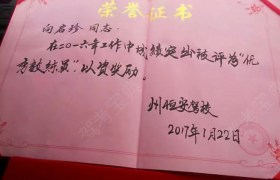 荣誉证书
向启珍同志：
在二〇一六年工作中成绩突出被评为“优
秀教练员”以资奖励。
州恒安驾校
2017年1月22日